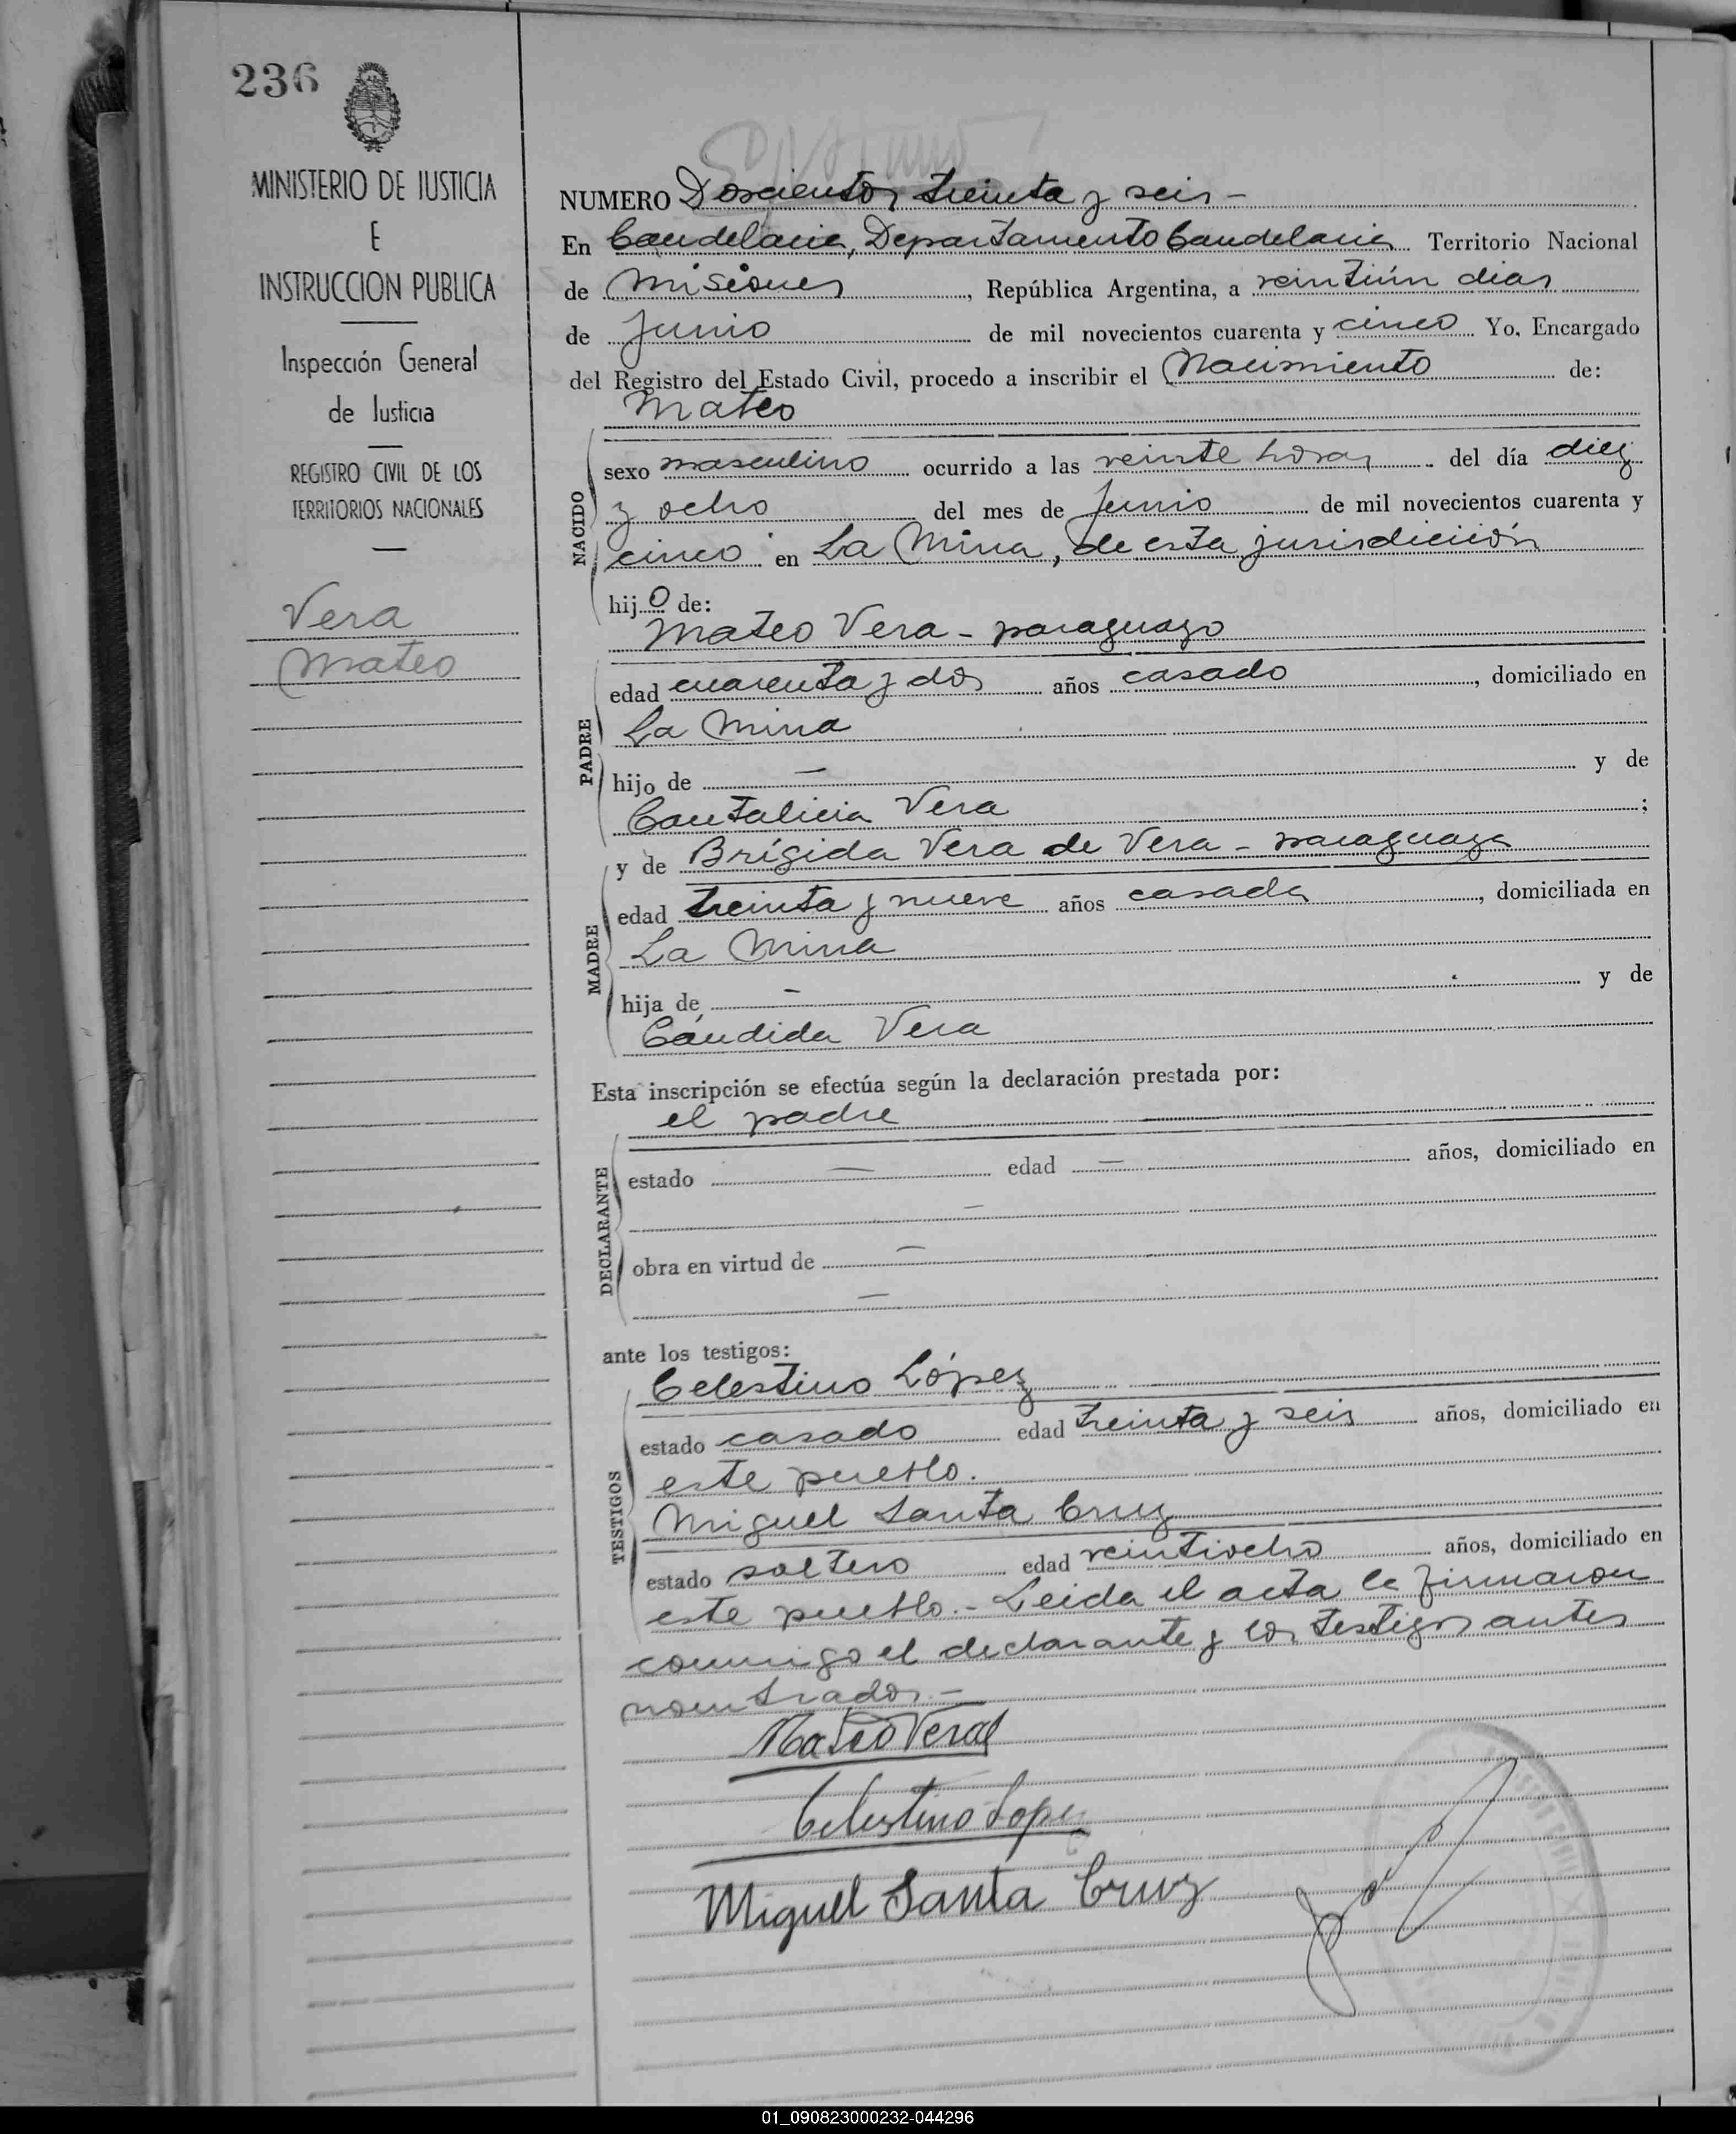 236
MINISTERIO DE JUSTICIA
E
INSTRUCCION PUBLICA
Inspección General
de Justicia
REGISTRO CIVIL DE LOS
TERRITORIOS NACIONALES
Vera
Mateo
NUMERO Doscientos treinta y seis -
En Candelaria, Departamento Candelaria Territorio Nacional
de Misiones, República Argentina, a veintiún dias
de Junio de mil novecientos cuarenta y cinco Yo, Encargado
del Registro del Estado Civil, procedo a inscribir el Nacimiento de:
Mateo
NACIDO
sexo masculino ocurrido a las veinte horas del día diez
y ocho del mes de Junio de mil novecientos cuarenta y
cinco en La Mina, de esta jurisdicción
hijo de:
Mateo Vera - paraguayo
PADRE
edad cuarenta y dos años casado, domiciliado en
La Mina
hijo de — y de
Cantalicia Vera ;
y de Brígida Vera de Vera - paraguaya
MADRE
edad treinta y nueve años casada, domiciliada en
La Mina
hija de - y de
Cándida Vera
Esta inscripción se efectúa según la declaración prestada por:
el padre
DECLARANTE
estado — edad — años, domiciliado en
—
obra en virtud de —
—
ante los testigos:
Celestino López
TESTIGOS
estado casado edad treinta y seis años, domiciliado en
este pueblo.
Miguel Santa Cruz
estado soltero edad veintiocho años, domiciliado en
este pueblo.- Leida el acta la firmaron
conmigo el declarante y los testigos antes
nombrados.-
Mateo Vera
Celestino Lopez
Miguel Santa Cruz
01_090823000232-044296